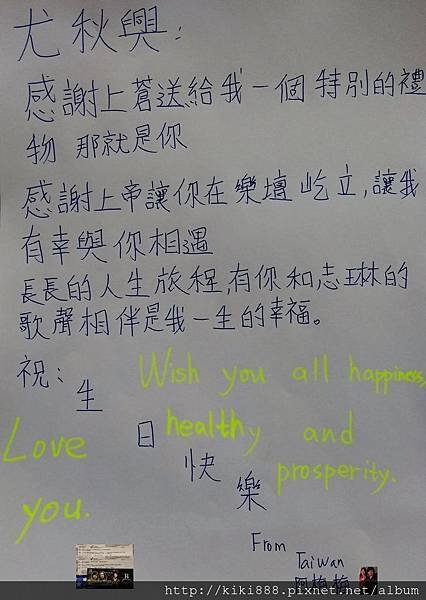 尤秋興:
感謝上蒼送給我一個特別的禮
物 那就是你
感謝上帝讓你在樂壇屹立,讓我
有幸與你相遇
長長的人生旅程,有你和志琳的
歌聲相伴是我一生的幸福。
祝:
生
日
快
樂
Wish you all happiness,
healthy and
prosperity.
Love
you.
From
Taiwan
阿梅梅
http://kiki888.pixnet.net/album